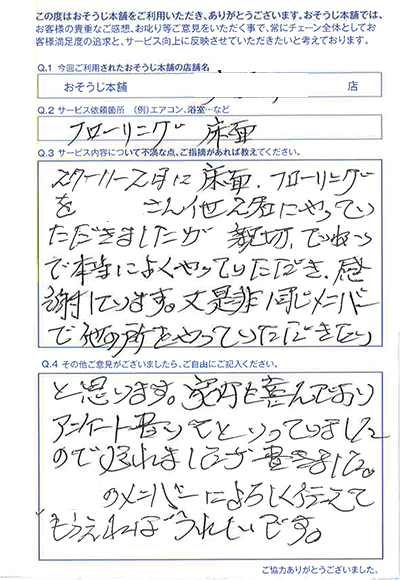 この度はおそうじ本舗をご利用いただき、ありがとうございます。おそうじ本舗では、
お客様の貴重なご感想、お叱り等ご意見をいただく事で、常にチェーン全体としてお
客様満足度の追求と、サービス向上に反映させていただきたいと考えております。
Q.1 今回ご利用されたおそうじ本舗の店舗名
おそうじ本舗 店
Q.2 サービス依頼箇所 (例)エアコン、浴室…など
フローリング 床面
Q.3 サービス内容について不満な点、ご指摘があれば教えてください。
に床面、フローリング
を さん他2名にやってい
ただきましたが 親切、ていねい
で本当によくやっていただき、感
謝しています。又是非同じメンバー
で他の所をやっていただきたい
Q.4 その他ご意見がございましたら、ご自由にご記入ください。
と思います。家内も喜んでおり
アンケート書いてといっていました
ので遅れましたが書きました。
のメンバーによろしく伝えて
もらえればうれしいです。
ご協力ありがとうございました。